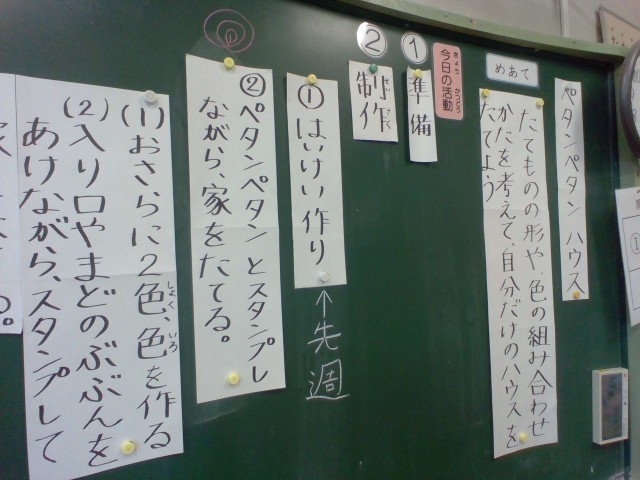 ペタンペタン ハウス
めあて
たてものの形や、色の組み合わせ
かたを考えて、自分だけのハウスを
たてよう
きょう かつどう
今日の活動
① 準備
② 制作
① はいけい作り
↑先週
② ペタンペタンとスタンプし
ながら、家をたてる。
(1) おさらに2色、色を作る
しょく いろ
(2) 入り口やまどのぶぶんを
あけながら、スタンプして